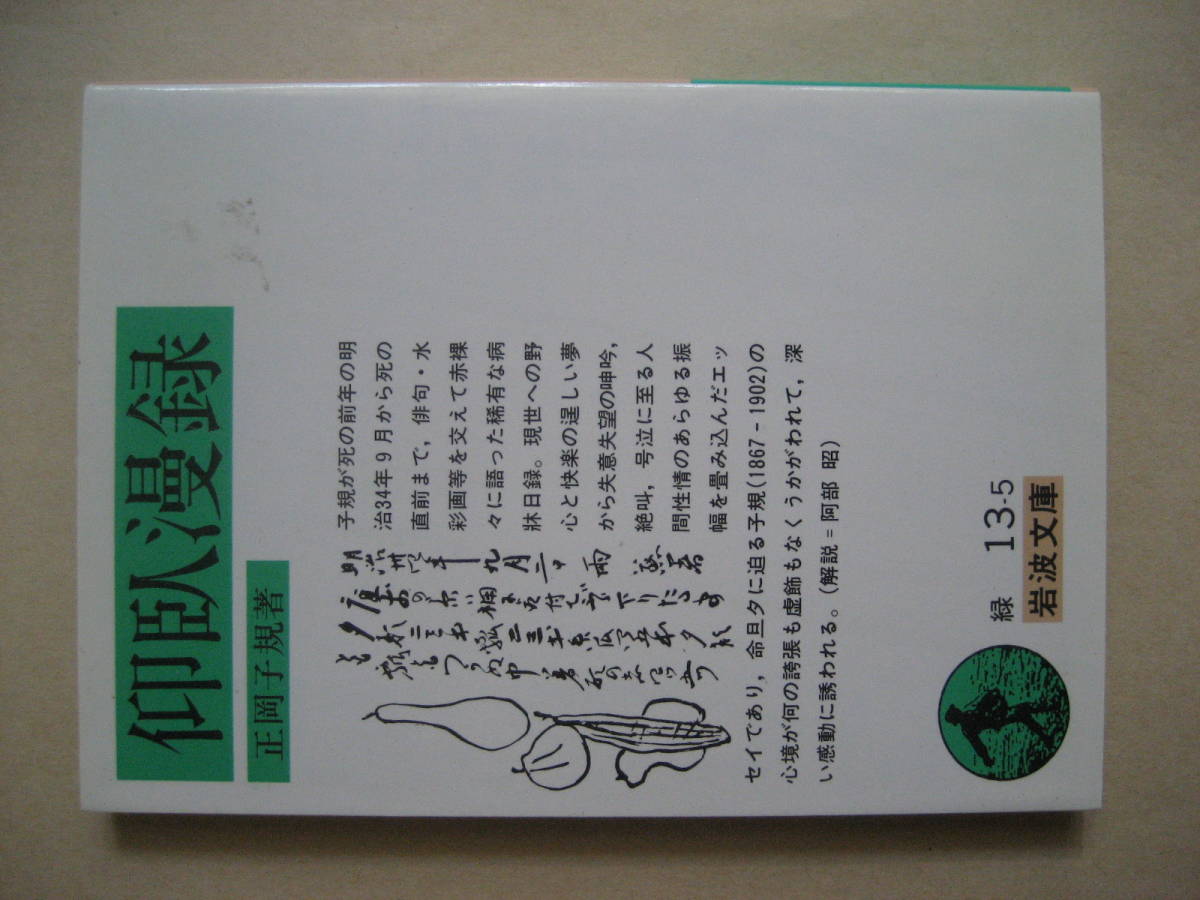 仰臥漫録
正岡子規著
子規が死の前年の明
治34年9月から死の
直前まで，俳句・水
彩画等を交えて赤裸
々に語った稀有な病
牀日録。現世への野
心と快楽の逞しい夢
から失意失望の呻吟，
絶叫，号泣に至る人
間性情のあらゆる振
幅を畳み込んだエッ
セイであり，命旦夕に迫る子規(1867-1902)の
心境が何の誇張も虚飾もなくうかがわれて，深
い感動に誘われる。(解説=阿部 昭)
緑 13-5
岩波文庫